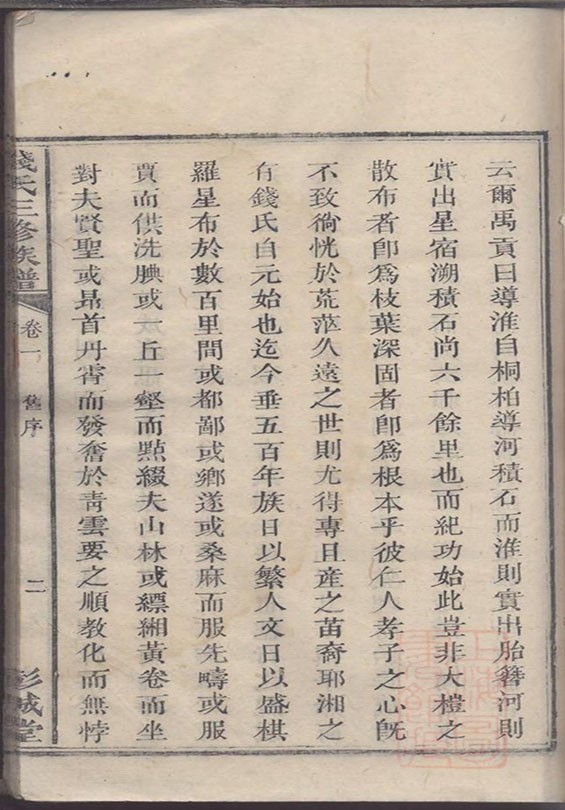 云爾禹貢曰導淮自桐柏導河積石而淮則實出胎簪河則
實出星宿溯積石尚六千餘里也而紀功始此豈非大禮之
散布者卽爲枝葉深固者卽爲根本乎彼仁人孝子之心旣
不致徜恍於荒茫久遠之世則尤得專且産之苗裔耶湘之
有錢氏自元始也迄今垂五百年族日以繁人文日以盛棋
羅星布於數百里間或都鄙或鄉遂或桑麻而服先疇或服
賈而供洗腆或一丘一壑而點綴夫山林或縹緗黃卷而坐
對夫賢聖或昻首丹霄而發奮於靑雲要之順教化而無悖
錢氏三修族譜
卷一
舊序
二
彭城堂